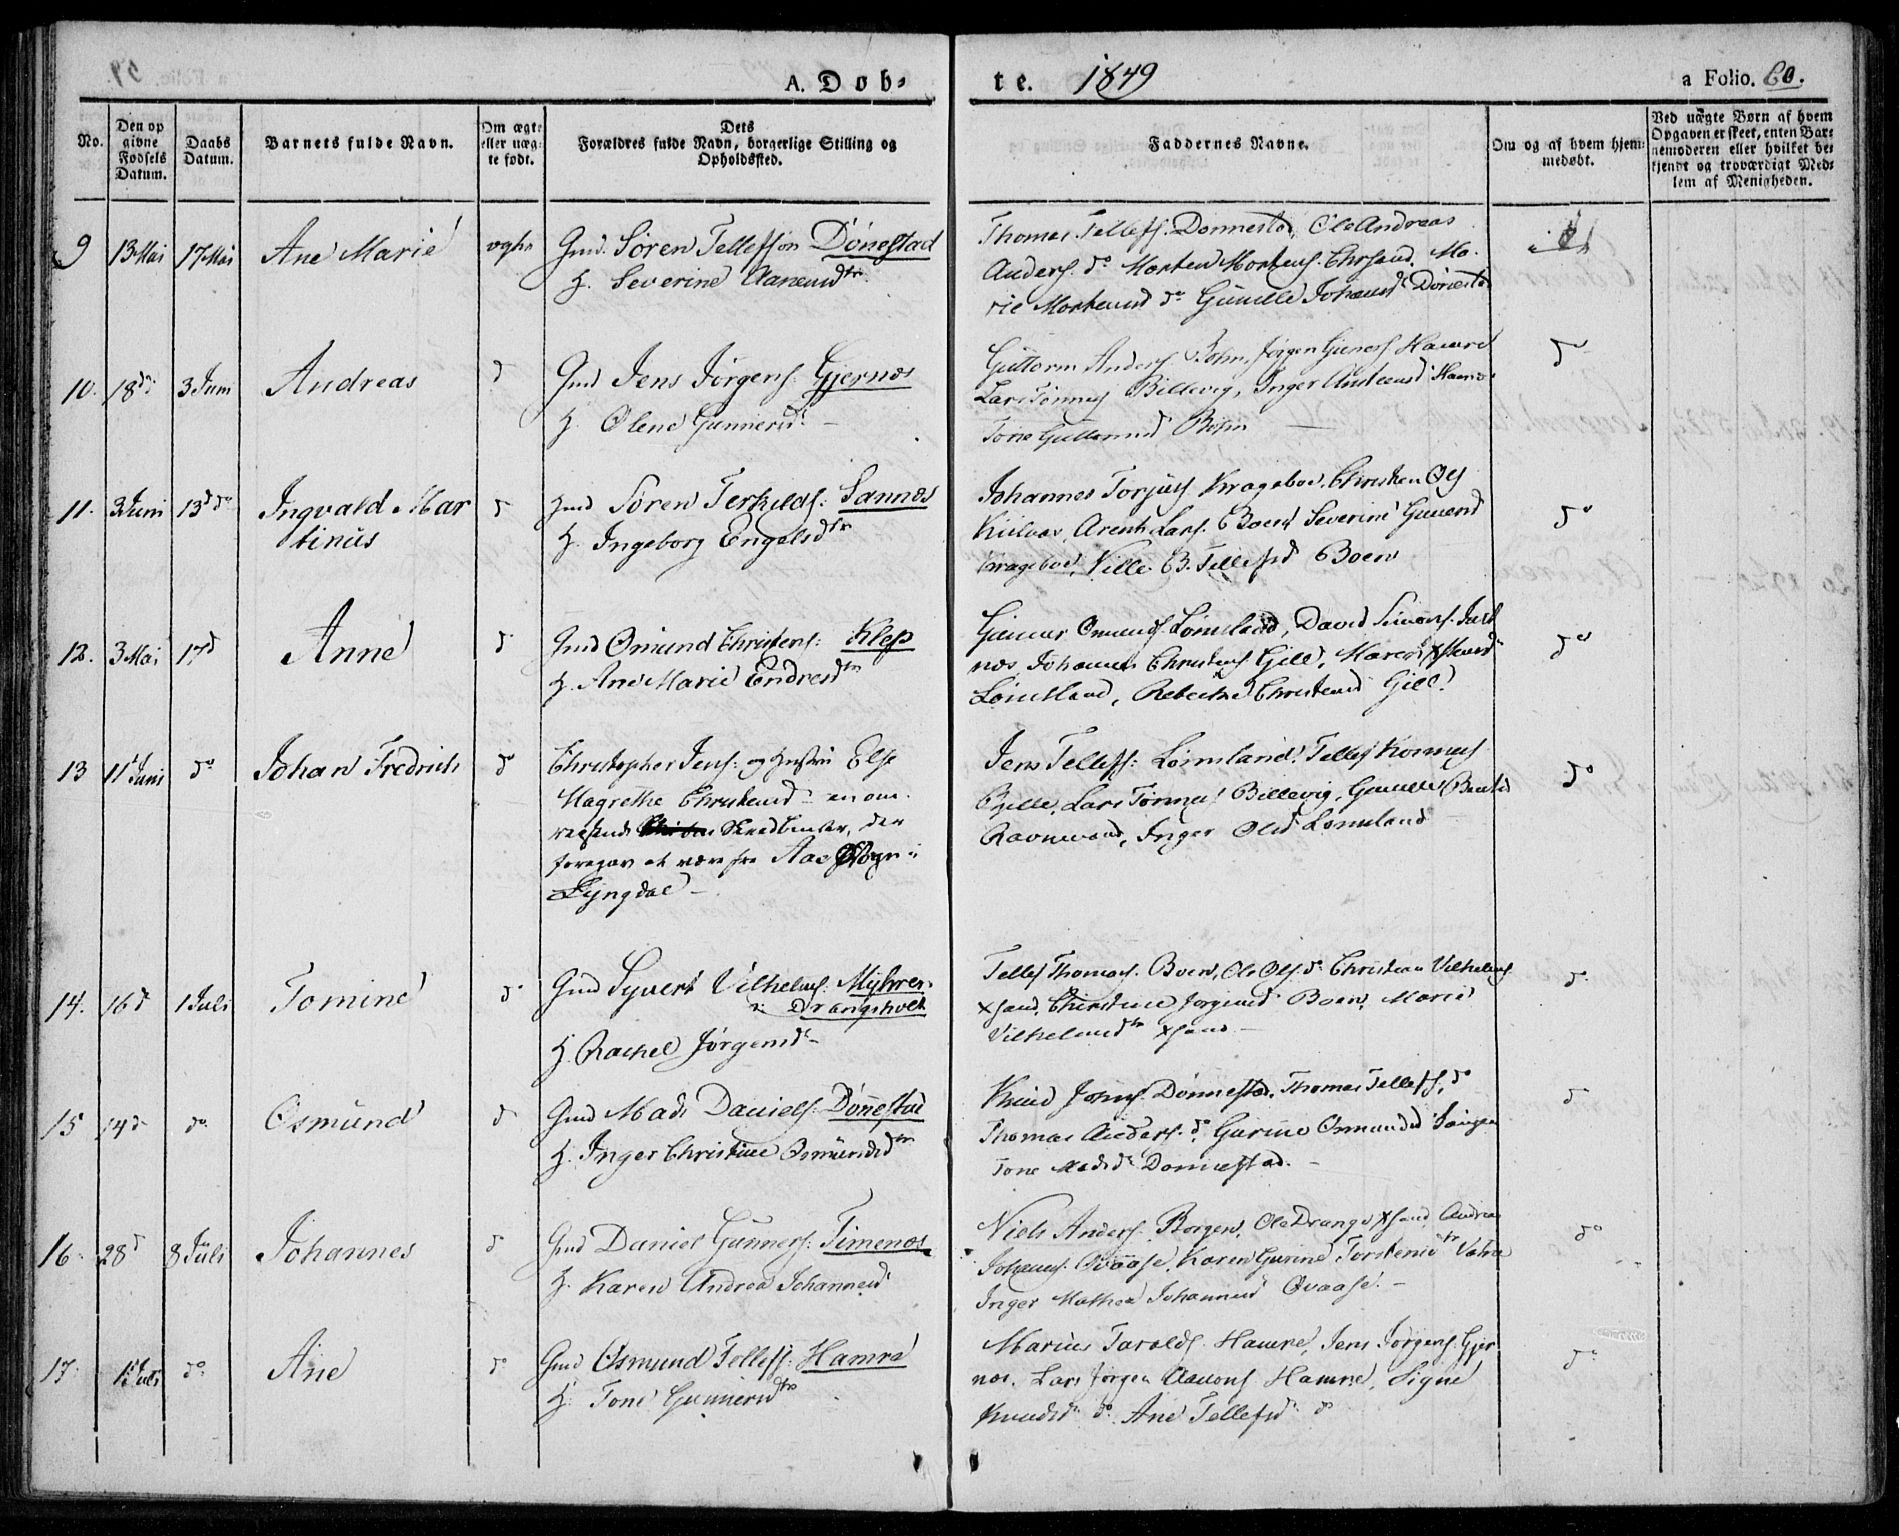 A. Døb-
te. 1849
a Folio. 60.
No.
Den op
givne
Fødsels
Datum.
Daabs
Datum.
Barnets fulde Navn.
Om ægte
eller uæg-
te født.
Dets
Forældres fulde Navn, borgerlige Stilling og
Opholdssted.
Faddernes Navne.
Om og af hvem hjem-
medøbt.
Ved uægte Børn af hvem
Opgaven er skeet, enten Bar-
nemoderen eller hvilket be-
kjendt og troværdigt Med-
lem af Menigheden.
9 13 Mai 17 Mai Ane Marie ægte
Gmd. Søren Tellefson Dønestad
H. Severine Aanensdtr
Thomas Tellefs. Dønnestad, Ole Andreas
Anders. do Morten Mortens. Chrsand, Ma-
rie Mortensd do Gunille Johansd Dønestad
10. 18 d: 3 Juni Andreas d
Gmd Jens Jørgens: Gjernæs
H. Olene Gunnersd. -
Guttorm Anders Bohn, Jørgen Guners Hamre
Lars Tønnes Billevig, Inger Hamre
Tone Guttormsd Bohn
do
11. 3 Juni 13 d do Ingvald Mar
tinus d
Gmd Søren Terkilds: Sannæs
H. Ingeborg Engelsdtr
Johannes Torjus Krageboe, Christen Ols
Arent Lars. Boen, Severine Gunersd
Krageboe, Nille B. Tellefsd Boen
do
12. 3 Mai 17 d Anne d
Gmd Osmund Christens: Klep
H. Ane Marie Endresdtr
Gunnar Osmunds Lømsland, David Simons. Just
næs Johannes Christens Gill, Maren
Lømsland, Rebekke Christensd Gill.
do
13 11 Juni do Johan Fredrich do
Christopher Jens: og Hustru Else
Magrethe Christensd - en om-
reisende der
foregav at være fra Aas Sogn i
Lyngdal -
Jens Tellefs: Lømsland, Tellef
Lars Tønnes Billevig, Gunille Bentsd
Ravnevand, Inger Olsd Lømsland
do
14. 16 d 1 Juli Tomine do
Gmd Syvert Vilhelms. Myhren
i Drangsholt
H. Rachel Jørgensd. -
Tellef Thomas. Boen, Ole Ols do Christian Vilhelms
Xsand, Christine Jørgensd Boen, Marie
Vilhelmsdtr Xsand -
do
15 14 d do Osmund d
Gmd Mads Daniels. Dønnestad
H. Inger Christine Osmundsdtr
Knud Johns Dønnestad, Thomas Tellefs, do
Thomas Anders. do, Gurine Osmundsd
Tone Madsd Dønnestad. -
d
16. 28 d 8 Juli Johannes d
Gmd Daniel Gunners: Timenæs
H. Karen Andrea Johannesd
Niels Anders. Borgen, Ole Drange Xsand, Andreas
Johans. Qvaase, Karen Gurine Torstensdtr Vatne
Inger Mathea Johannesd Qvaase. -
do
17. 1 Juli do Ane do
Gmd Osmund Tellefs: Hamre
H. Tone Gunnersdtr
Marius Taralds. Hamre, Jens Jørgens. Gjer-
næs, Lars Jørgen Aanons Hamre, Signe
Knudsd do Ane Tellefsd do
do